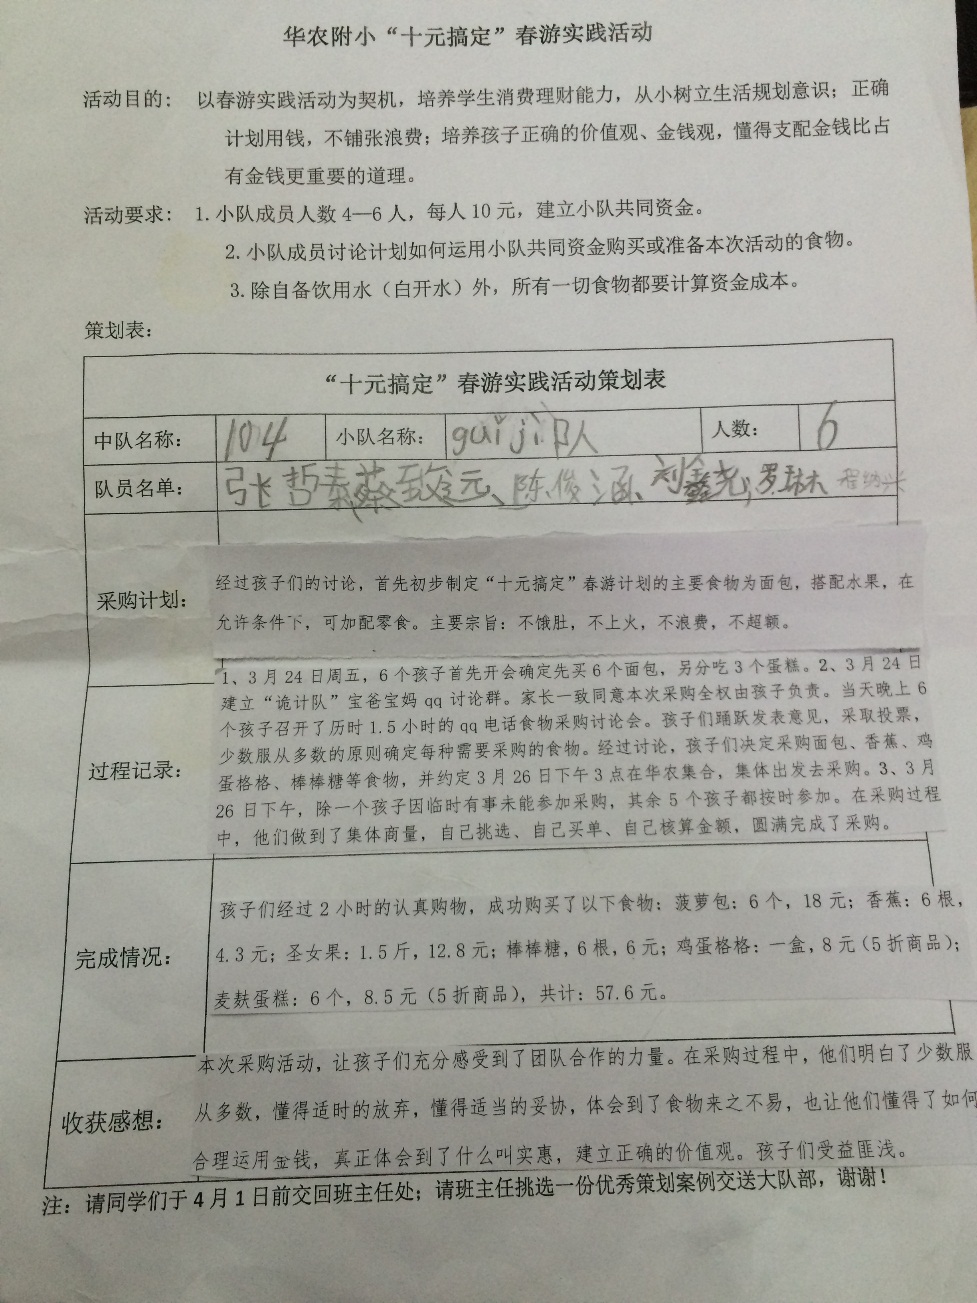 华农附小“十元搞定”春游实践活动
活动目的： 以春游实践活动为契机，培养学生消费理财能力，从小树立生活规划意识；正确
计划用钱，不铺张浪费；培养孩子正确的价值观、金钱观，懂得支配金钱比占
有金钱更重要的道理。
活动要求： 1.小队成员人数 4—6 人，每人 10 元，建立小队共同资金。
2.小队成员讨论计划如何运用小队共同资金购买或准备本次活动的食物。
3.除自备饮用水（白开水）外，所有一切食物都要计算资金成本。
策划表：
“十元搞定”春游实践活动策划表
中队名称： 104 小队名称： guǐ jì 队 人数： 6
队员名单： 张哲 蔡致远、陈俊涵、刘鑫尧，罗
采购计划：
经过孩子们的讨论，首先初步制定“十元搞定”春游计划的主要食物为面包，搭配水果，在
允许条件下，可加配零食。主要宗旨：不饿肚，不上火，不浪费，不超额。
过程记录：
1、3 月 24 日周五，6 个孩子首先开会确定先买 6 个面包，另分吃 3 个蛋糕。2、3 月 24 日
建立“诡计队”宝爸宝妈 qq 讨论群。家长一致同意本次采购全权由孩子负责。当天晚上 6
个孩子召开了历时 1.5 小时的 qq 电话食物采购讨论会。孩子们踊跃发表意见，采取投票，
少数服从多数的原则确定每种需要采购的食物。经过讨论，孩子们决定采购面包、香蕉、鸡
蛋格格、棒棒糖等食物，并约定 3 月 26 日下午 3 点在华农集合，集体出发去采购。3、3 月
26 日下午，除一个孩子因临时有事未能参加采购，其余 5 个孩子都按时参加。在采购过程
中，他们做到了集体商量，自己挑选、自己买单、自己核算金额，圆满完成了采购。
完成情况：
孩子们经过 2 小时的认真购物，成功购买了以下食物：菠萝包：6 个，18 元；香蕉：6 根，
4.3 元；圣女果：1.5 斤，12.8 元；棒棒糖，6 根，6 元；鸡蛋格格：一盒，8 元（5 折商品）；
麦麸蛋糕：6 个，8.5 元（5 折商品），共计：57.6 元。
收获感想：
本次采购活动，让孩子们充分感受到了团队合作的力量。在采购过程中，他们明白了少数服
从多数，懂得适时的放弃，懂得适当的妥协，体会到了食物来之不易，也让他们懂得了如何
合理运用金钱，真正体会到了什么叫实惠，建立正确的价值观。孩子们受益匪浅。
注：请同学们于 4 月 1 日前交回班主任处；请班主任挑选一份优秀策划案例交送大队部，谢谢！